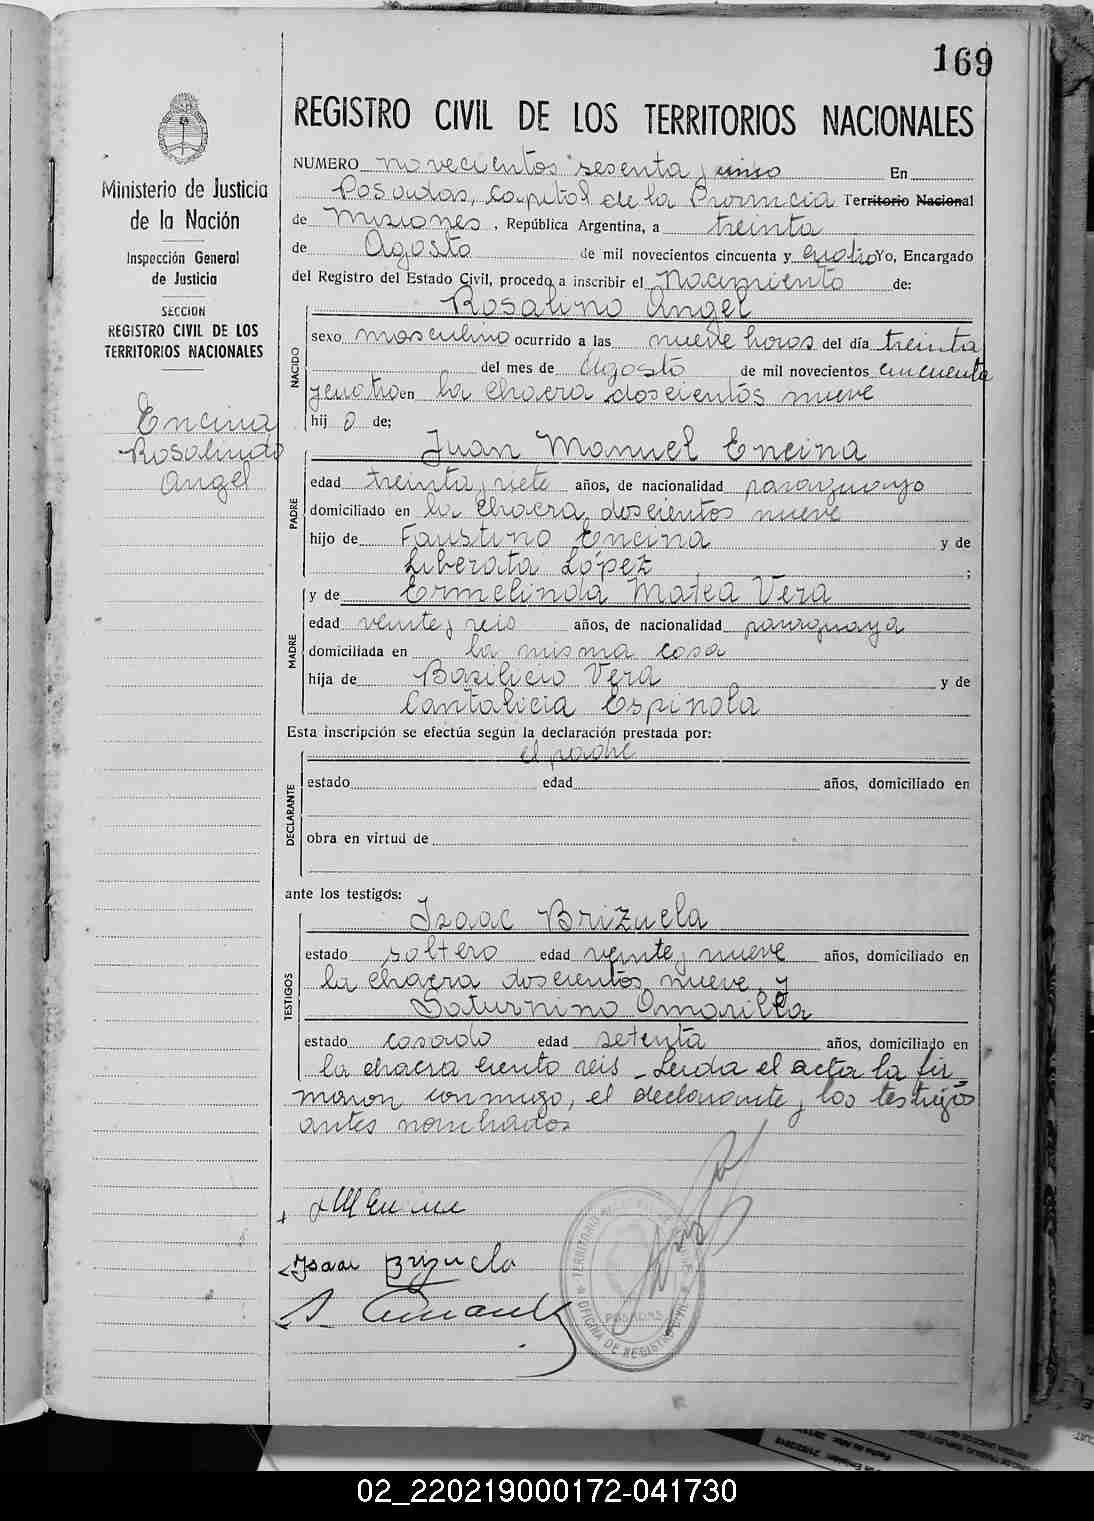 169
REGISTRO CIVIL DE LOS TERRITORIOS NACIONALES
Ministerio de Justicia
de la Nación
Inspección General
de Justicia
SECCION
REGISTRO CIVIL DE LOS
TERRITORIOS NACIONALES
Encina
Rosalindo
Angel
NUMERO novecientos sesenta y cinco En
Posadas, capital de la Provincia Territorio Nacional
de Misiones, República Argentina, a treinta
de Agosto de mil novecientos cincuenta y cuatro Yo, Encargado
del Registro del Estado Civil, procedo a inscribir el Nacimiento de:
Rosalino Angel
NACIDO
sexo masculino ocurrido a las nueve horas del día treinta
del mes de Agosto de mil novecientos cincuenta
y cuatro en la chacra doscientos nueve
hij o de;
Juan Manuel Encina
PADRE
edad treinta y siete años, de nacionalidad paraguayo
domiciliado en la chacra doscientos nueve
hijo de Faustino Encina y de
Liberata López ;
y de Ermelinda Matea Vera
MADRE
edad veinte y seis años, de nacionalidad paraguaya
domiciliada en la misma casa
hija de Basilicio Vera y de
Cantalicia Espinola
Esta inscripción se efectúa según la declaración prestada por:
el padre
DECLARANTE
estado edad años, domiciliado en
obra en virtud de
ante los testigos:
Isaac Brizuela
TESTIGOS
estado soltero edad veinte y nueve años, domiciliado en
la chacra doscientos nueve y
Saturnino Amarilla
estado casado edad setenta años, domiciliado en
la chacra ciento seis - Leida el acta la fir
maron conmigo, el declarante y los testigos
antes nombrados
JM Encina
Isaac Brizuela
S.
POSADAS
OFICINA DE REGISTRO CIVIL
02_220219000172-041730